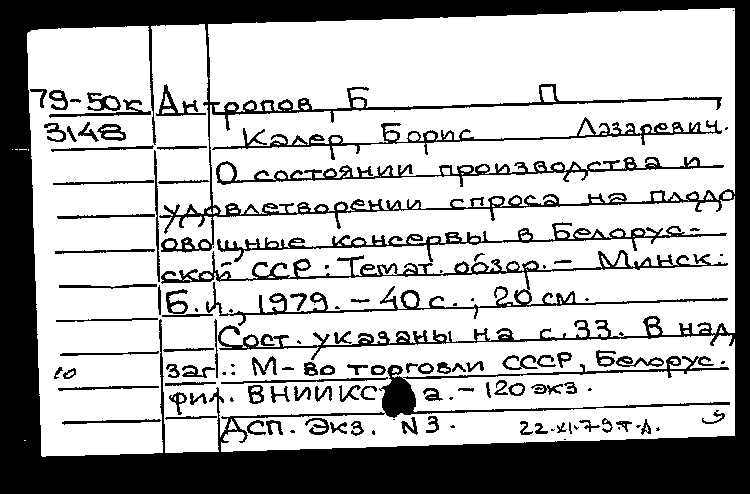 79-50к Антропов, Б П ,
3148 Калер, Борис Лазаревич.
О состоянии производства и
удовлетворении спроса на плодо
овощные консервы в Белорус-
ской ССР: Темат. обзор. - Минск:
Б.и., 1979. - 40 с. ; 20 см.
Сост. указаны на с. 33. В над
10 заг.: М-во торговли СССР, Белорус.
фил. ВНИИКС а. - 120 экз.
ДСП. Экз. N3. 22.XI.79